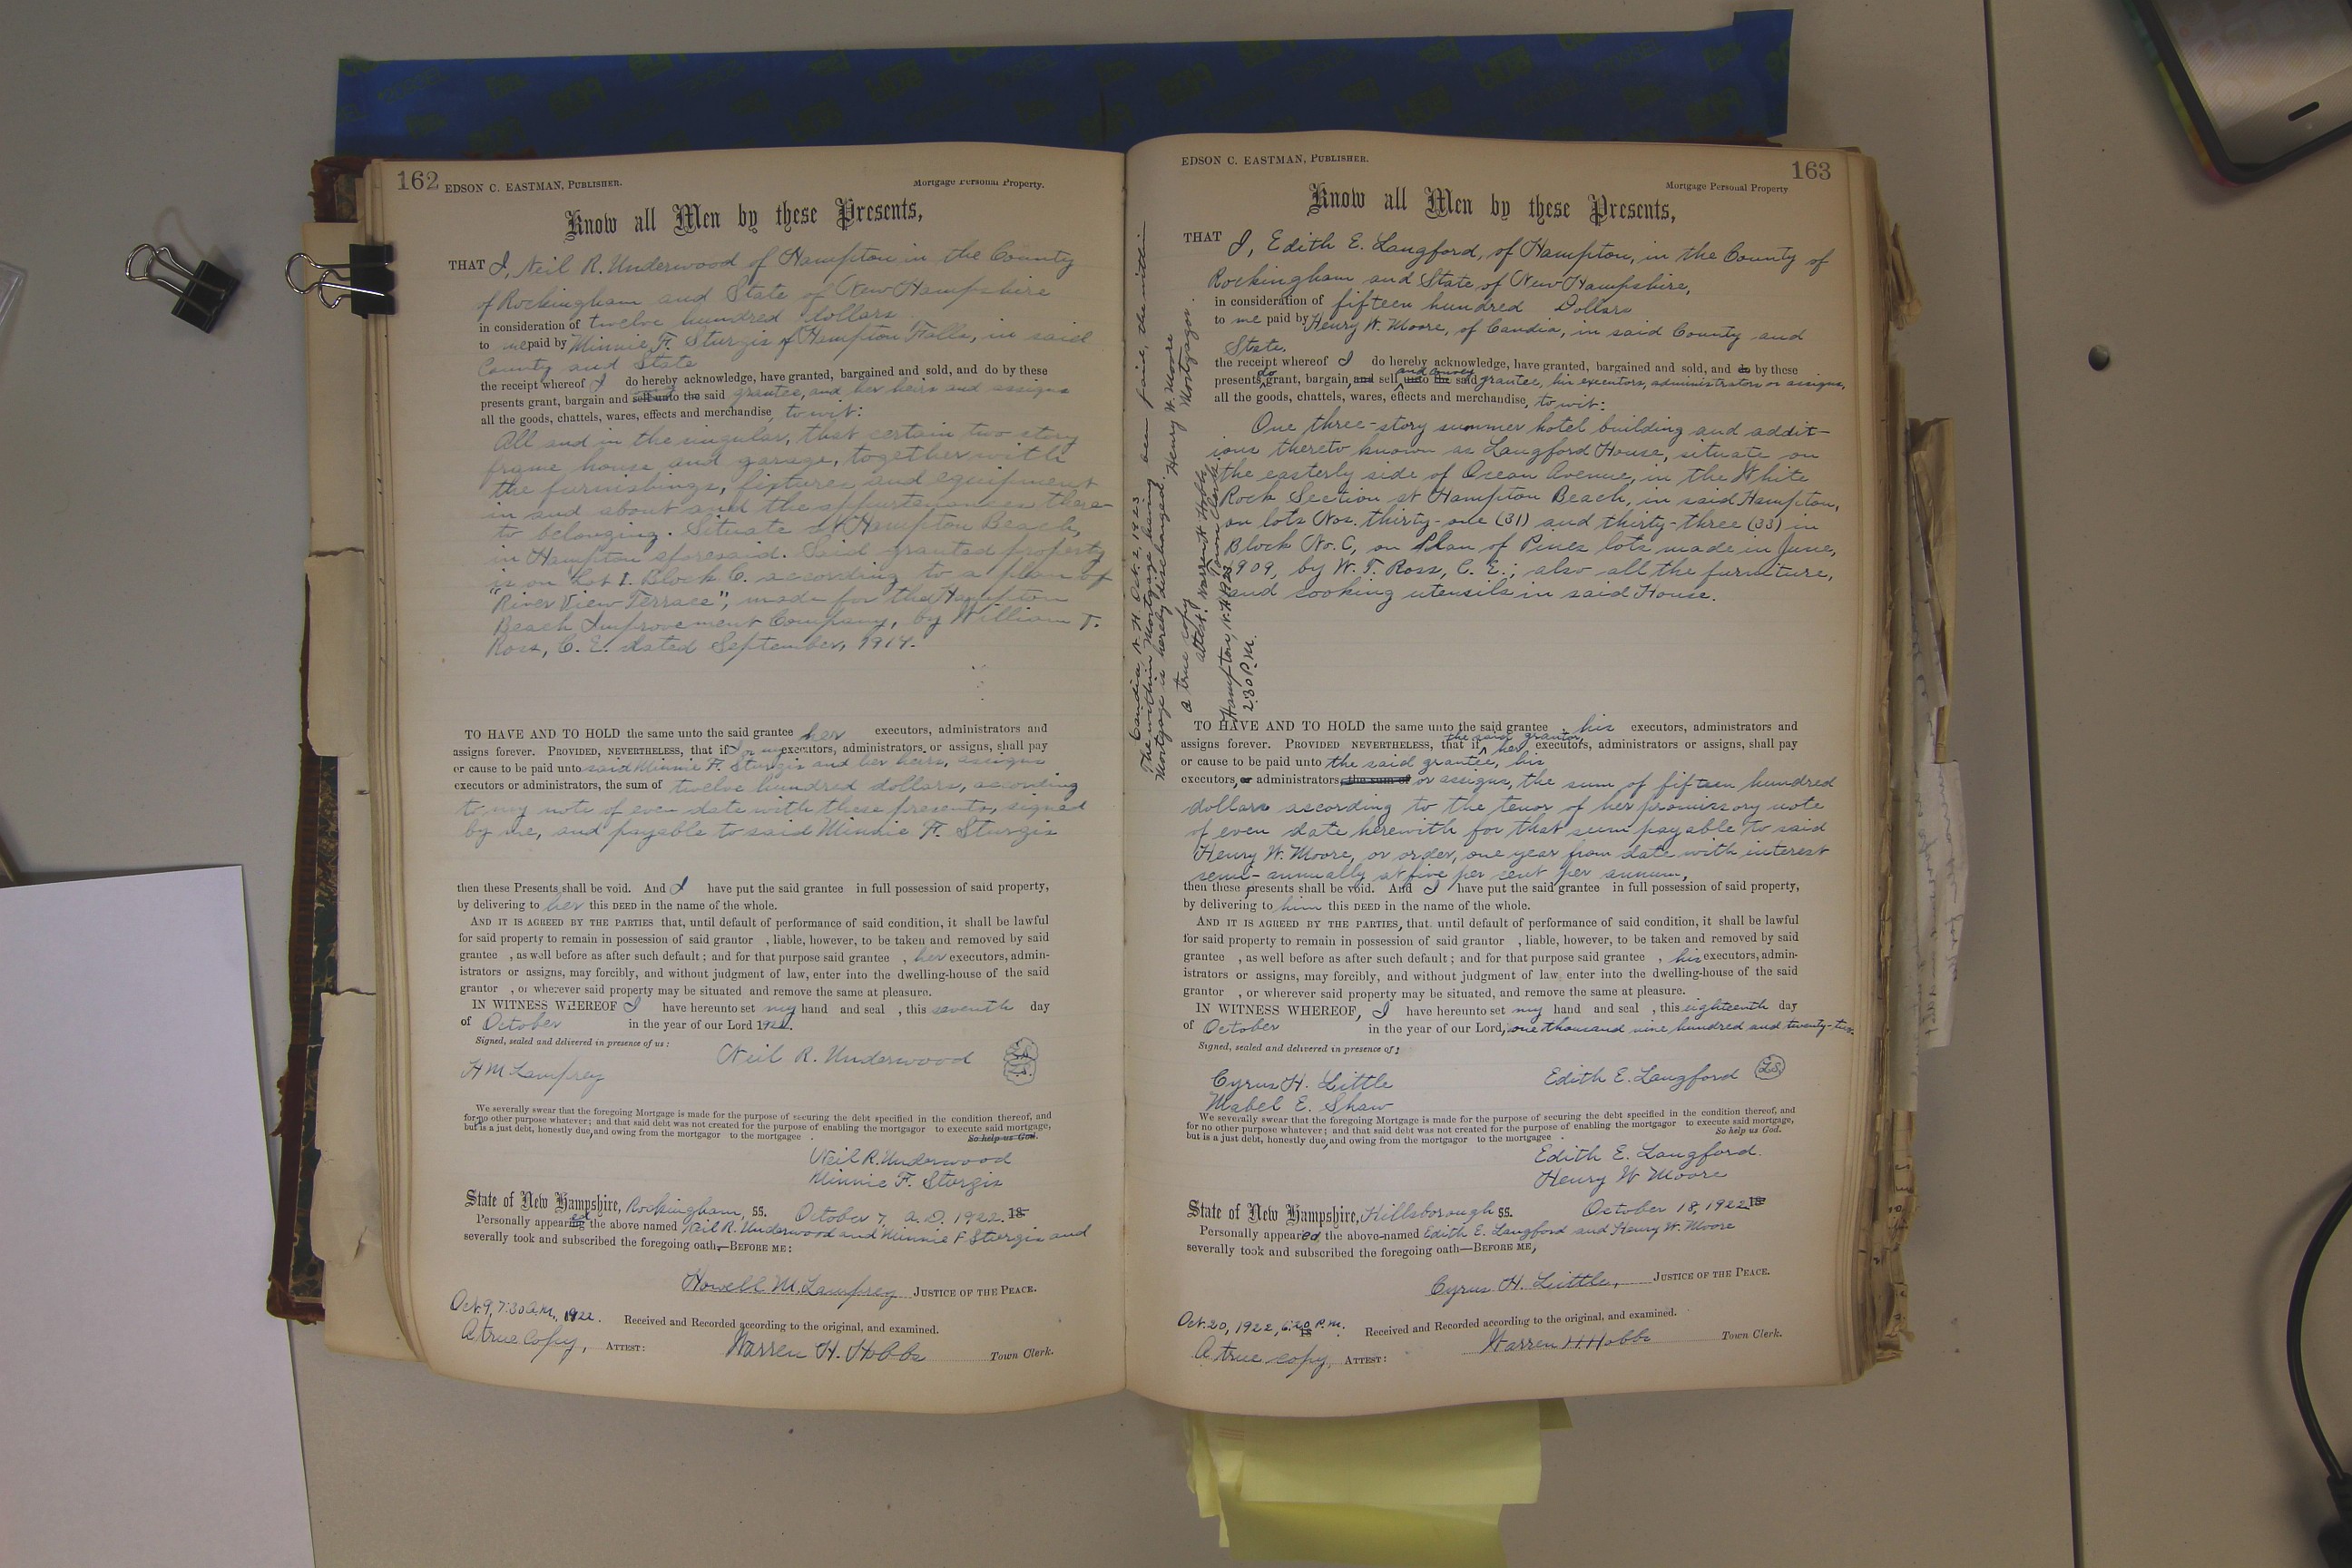 162 EDSON C. EASTMAN, PUBLISHER. Mortgage Personal Property.
Know all Men by these Presents,
THAT I, Neil R. Underwood of Hampton in the County
of Rockingham and State of New Hampshire
in consideration of twelve hundred dollars
to me paid by Minnie F. Sturgis of Hampton Falls, in said
County and State
the receipt whereof I do hereby acknowledge, have granted, bargained and sold, and do by these
presents grant, bargain and sell unto the said grantee, and her heirs and assigns
all the goods, chattels, wares, effects and merchandise, to wit:
All and in the singular, that certain two story
frame house and garage, together with
the furnishings, fixtures and equipment
in and about and the appurtenances there-
to belonging. Situate at Hampton Beach,
in Hampton aforesaid. Said granted property
is on Lot 1. Block C. according to a plan of
"River View Terrace", made for the Hampton
Beach Improvement Company, by William T.
Ross, C. E. dated September, 1914.
TO HAVE AND TO HOLD the same unto the said grantee her executors, administrators and
assigns forever. PROVIDED, NEVERTHELESS, that if I or my executors, administrators or assigns, shall pay
or cause to be paid unto said Minnie F. Sturgis and her heirs, assigns
executors or administrators, the sum of twelve hundred dollars, according
to my note of even date with these presents, signed
by me, and payable to said Minnie F. Sturgis
then these Presents shall be void. And I have put the said grantee in full possession of said property,
by delivering to her this DEED in the name of the whole.
AND IT IS AGREED BY THE PARTIES that, until default of performance of said condition, it shall be lawful
for said property to remain in possession of said grantor , liable, however, to be taken and removed by said
grantee , as well before as after such default; and for that purpose said grantee , her executors, admin-
istrators or assigns, may forcibly, and without judgment of law, enter into the dwelling-house of the said
grantor , or wherever said property may be situated and remove the same at pleasure.
IN WITNESS WHEREOF I have hereunto set my hand and seal , this seventh day
of October in the year of our Lord 1922.
Signed, sealed and delivered in presence of us:
Neil R. Underwood L.S.
H M Lamprey L.S.
We severally swear that the foregoing Mortgage is made for the purpose of securing the debt specified in the condition thereof, and
for no other purpose whatever; and that said debt was not created for the purpose of enabling the mortgagor to execute said mortgage,
but is a just debt, honestly due, and owing from the mortgagor to the mortgagee . So help us God.
Neil R. Underwood
Minnie F. Sturgis
State of New Hampshire, Rockingham, ss. October 7, A.D. 1922. 18
Personally appeared the above named Neil R. Underwood and Minnie F Sturgis and
severally took and subscribed the foregoing oath,—BEFORE ME:
Howell M. Lamprey JUSTICE OF THE PEACE.
Oct. 9, 7:30 A.M., 1922. Received and Recorded according to the original, and examined.
A true copy, ATTEST: Warren H. Hobbs Town Clerk.
Candia, N. H. Oct. 2, 1923
The within Mortgage having been paid, the within
Mortgage is hereby discharged. Henry W. Moore
Mortgagor.
a true copy
attest. Warren H Hobbs
Town Clerk
Hampton, N.H. 1923
2:30 P.M.
EDSON C. EASTMAN, PUBLISHER. Mortgage Personal Property 163
Know all Men by these Presents,
THAT I, Edith E. Langford, of Hampton, in the County of
Rockingham and State of New Hampshire,
in consideration of fifteen hundred Dollars
to me paid by Henry W. Moore, of Candia, in said County and
State,
the receipt whereof I do hereby acknowledge, have granted, bargained and sold, and do by these
presents, do grant, bargain, and sell and convey unto the said grantee, his executors, administrators or assigns,
all the goods, chattels, wares, effects and merchandise, to wit:
One three-story summer hotel building and addit-
ions thereto known as Langford House, situate on
the easterly side of Ocean Avenue, in the White
Rock Section at Hampton Beach, in said Hampton,
on lots Nos. thirty-one (31) and thirty-three (33) in
Block No. C, on Plan of Pines lots made in June,
1909, by W. T. Ross, C. E.; also all the furniture,
and cooking utensils in said House.
TO HAVE AND TO HOLD the same unto the said grantee , his executors, administrators and
assigns forever. PROVIDED, NEVERTHELESS, that if the said grantor, her executors, administrators or assigns, shall pay
or cause to be paid unto the said grantee, his
executors, or administrators, the sum of or assigns, the sum of fifteen hundred
dollars according to the tenor of her promissory note
of even date herewith for that sum payable to said
Henry W. Moore, or order, one year from date with interest
semi-annually at five per cent per annum,
then these presents shall be void. And I have put the said grantee in full possession of said property,
by delivering to him this DEED in the name of the whole.
AND IT IS AGREED BY THE PARTIES, that, until default of performance of said condition, it shall be lawful
for said property to remain in possession of said grantor , liable, however, to be taken and removed by said
grantee , as well before as after such default; and for that purpose said grantee , his executors, admin-
istrators or assigns, may forcibly, and without judgment of law enter into the dwelling-house of the said
grantor , or wherever said property may be situated, and remove the same at pleasure.
IN WITNESS WHEREOF, I have hereunto set my hand and seal , this eighteenth day
of October in the year of our Lord, one thousand nine hundred and twenty-two.
Signed, sealed and delivered in presence of:
Cyrus H. Little Edith E. Langford L.S.
Mabel E. Shaw
We severally swear that the foregoing Mortgage is made for the purpose of securing the debt specified in the condition thereof, and
for no other purpose whatever; and that said debt was not created for the purpose of enabling the mortgagor to execute said mortgage,
but is a just debt, honestly due, and owing from the mortgagor to the mortgagee . So help us God.
Edith E. Langford.
Henry W Moore
State of New Hampshire, Hillsborough ss. October 18, 1922 18
Personally appeared, the above-named Edith E. Langford and Henry W. Moore
severally took and subscribed the foregoing oath—BEFORE ME,
Cyrus H. Little, JUSTICE OF THE PEACE.
Oct. 20, 1922, 6:20 P.M. 18 Received and Recorded according to the original, and examined.
A true copy, ATTEST: Warren H Hobbs Town Clerk.